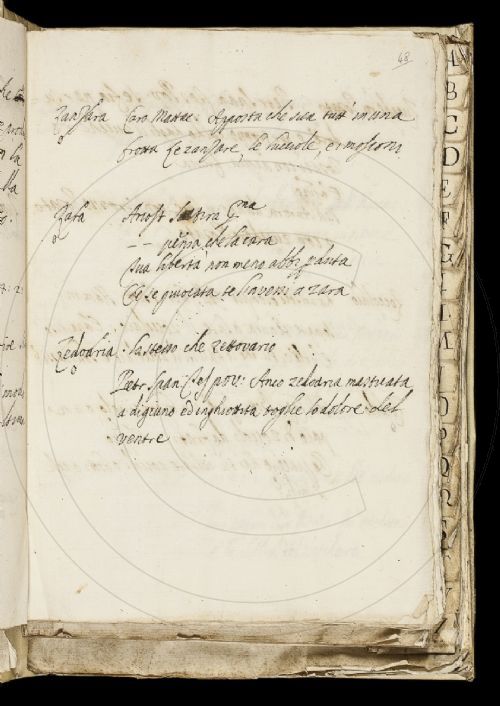 68
Zanzara Caro Mattac: Aggiosta che sia tutt' in una
frotta le zanzare, le lucciole, e i mosconi
Zara Ariost. Satira
-- pensa che la cara
sua libertà non meno abbi perduta
Che se giuocata se l'havessi a zara
Zedoaria: lo stesso che zettovario
Pietr. Span: Tes. pov: Anco zedoaria masticata
a digiuno ed inghiottita toglie lo dolore del
ventre
A
B
C
D
E
F
G
I
L
M
N
O
P
Q
R
S